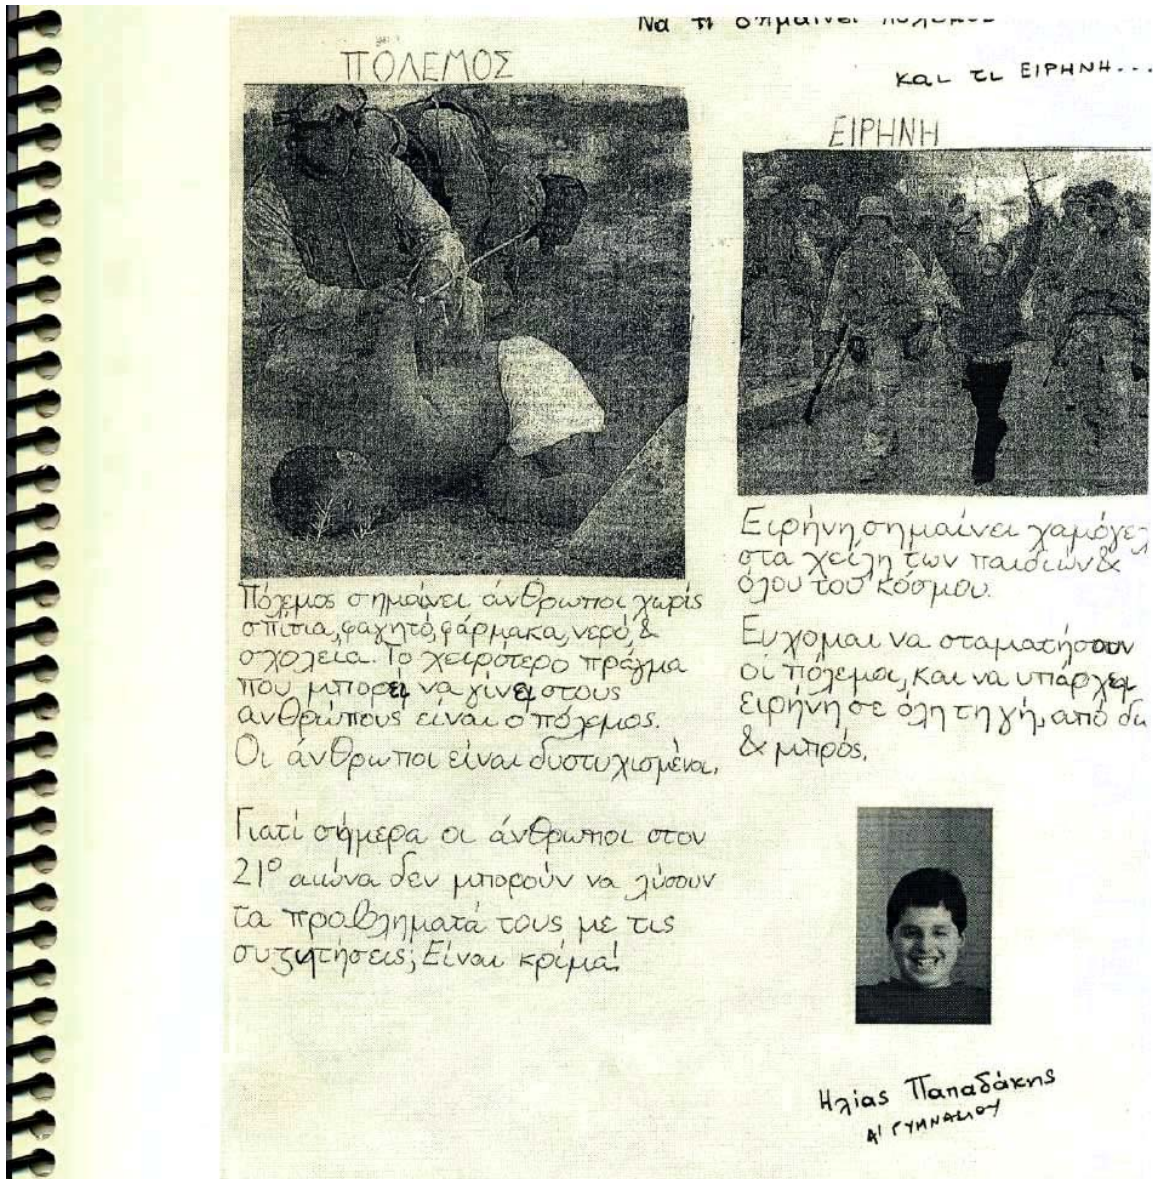 Να τι σημαίνει πόλεμος
και τι ΕΙΡΗΝΗ...
ΠΟΛΕΜΟΣ
Πόλεμος σημαίνει άνθρωποι χωρίς
σπίτια, φαγητό, φάρμακα, νερό, &
σχολεία. Το χειρότερο πράγμα
που μπορεί να γίνει στους
ανθρώπους είναι ο πόλεμος.
Οι άνθρωποι είναι δυστυχισμένοι.
Γιατί σήμερα οι άνθρωποι στον
21º αιώνα δεν μπορούν να λύσουν
τα προβλήματά τους με τις
συζητήσεις; Είναι κρίμα!
ΕΙΡΗΝΗ
Ειρήνη σημαίνει χαμόγελ
στα χείλη των παιδιών &
όλου του κόσμου.
Ευχομαι να σταματήσουν
οι πόλεμοι, και να υπάρχει
ειρήνη σε όλη τη γή, από δω
& μπρός.
Ηλίας Παπαδάκης
Α' ΓΥΜΝΑΣΙΟΥ